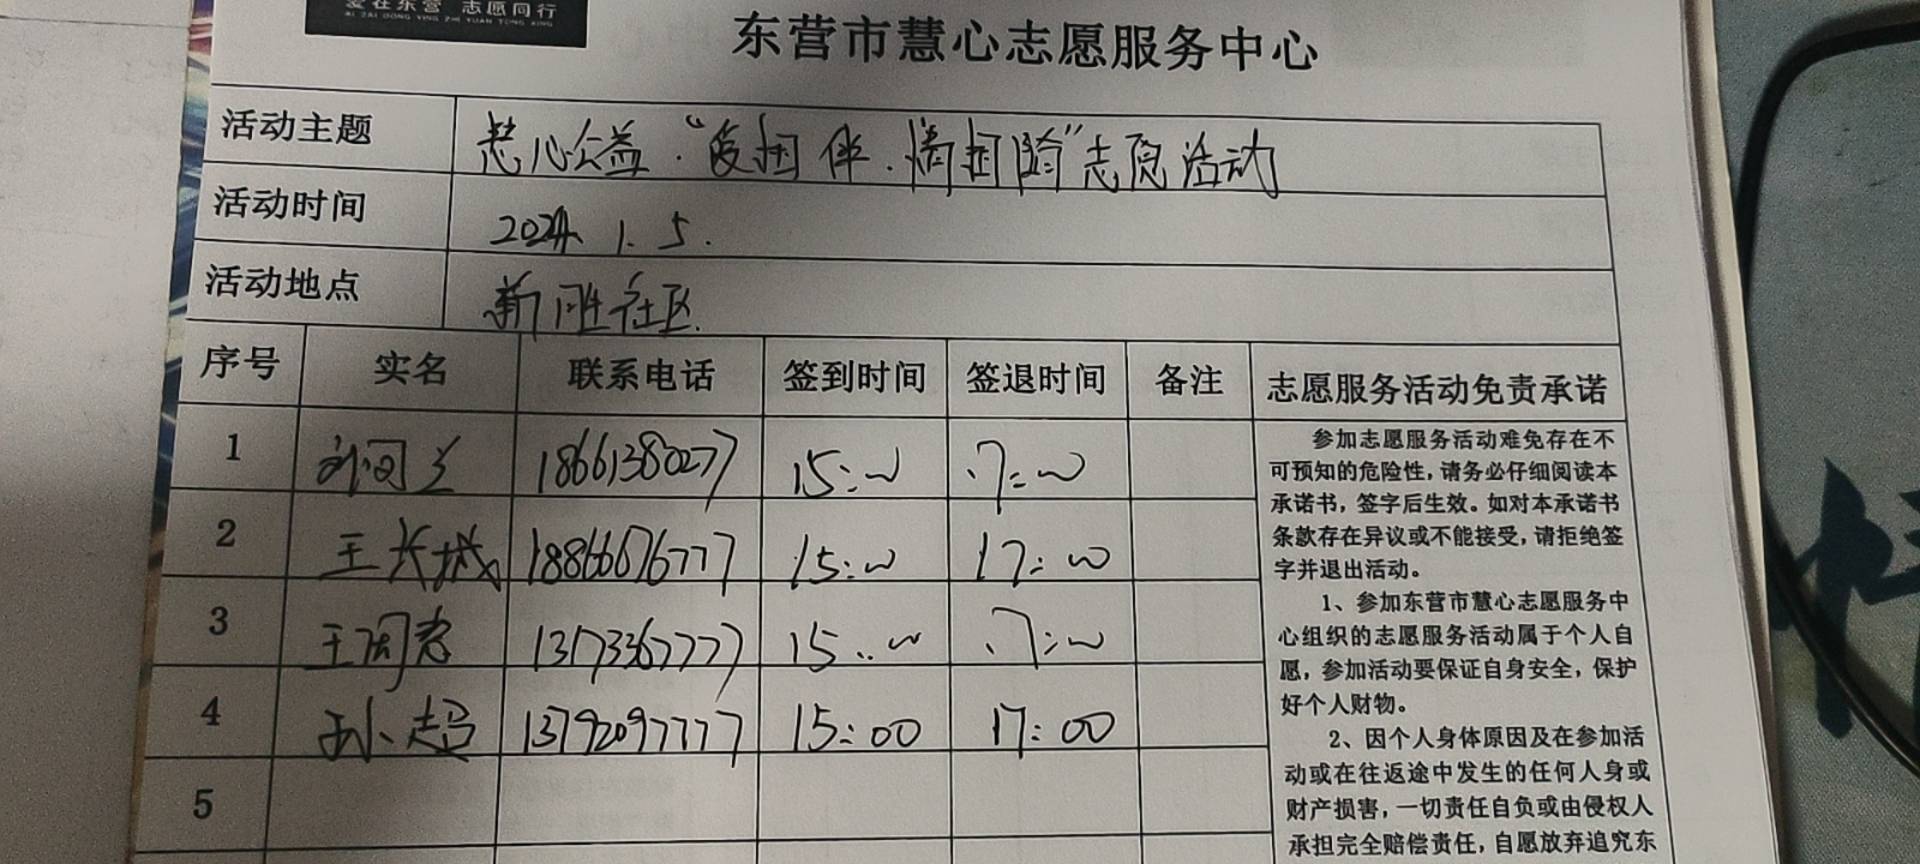 爱在东营 志愿同行
AI ZAI DONG YING ZHI YUAN TONG XING
东营市慧心志愿服务中心
活动主题 慧心公益·“爱相伴·情相随”志愿活动
活动时间 2024.1.5.
活动地点 新胜社区
序号 实名 联系电话 签到时间 签退时间 备注 志愿服务活动免责承诺
1 18661380277 15:00 17:00
2 王长城 18866676777 15:00 17:00
3 13173367777 15:00 17:00
4 孙超 13792097777 15:00 17:00
5
参加志愿服务活动难免存在不
可预知的危险性，请务必仔细阅读本
承诺书，签字后生效。如对本承诺书
条款存在异议或不能接受，请拒绝签
字并退出活动。
1、参加东营市慧心志愿服务中
心组织的志愿服务活动属于个人自
愿，参加活动要保证自身安全，保护
好个人财物。
2、因个人身体原因及在参加活
动或在往返途中发生的任何人身或
财产损害，一切责任自负或由侵权人
承担完全赔偿责任，自愿放弃追究东